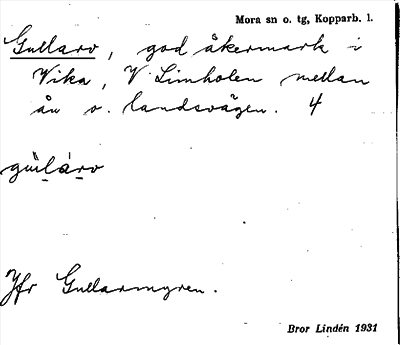 Mora sn o. tg, Kopparb. l.
Gullarv, god åkermark i
Vika, V Limholen mellan
ån o. landsvägen. 4
gùlárv
Jfr Gullarmyren.
Bror Lindén 1931